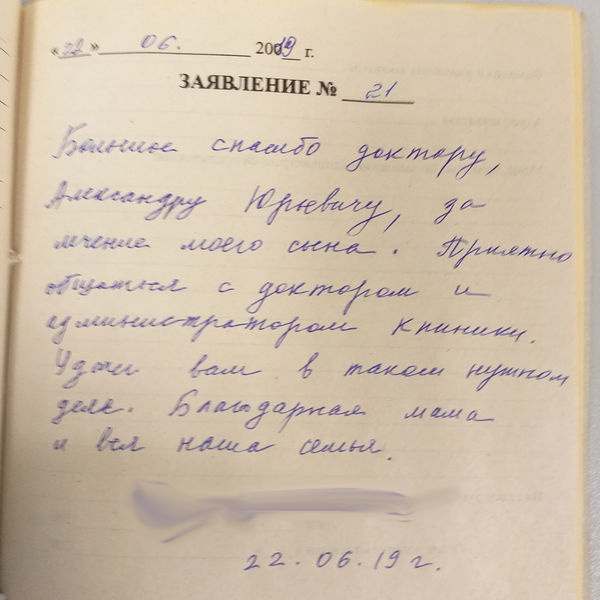 «22» 06. 2019 г.
ЗАЯВЛЕНИЕ № 21
Большое спасибо доктору,
Александру Юрьевичу, за
лечение моего сына. Приятно
общаться с доктором и
администратором клиники.
Удачи вам в таком нужном
деле. Благодарная мама
и вся наша семья.
22.06.19 г.